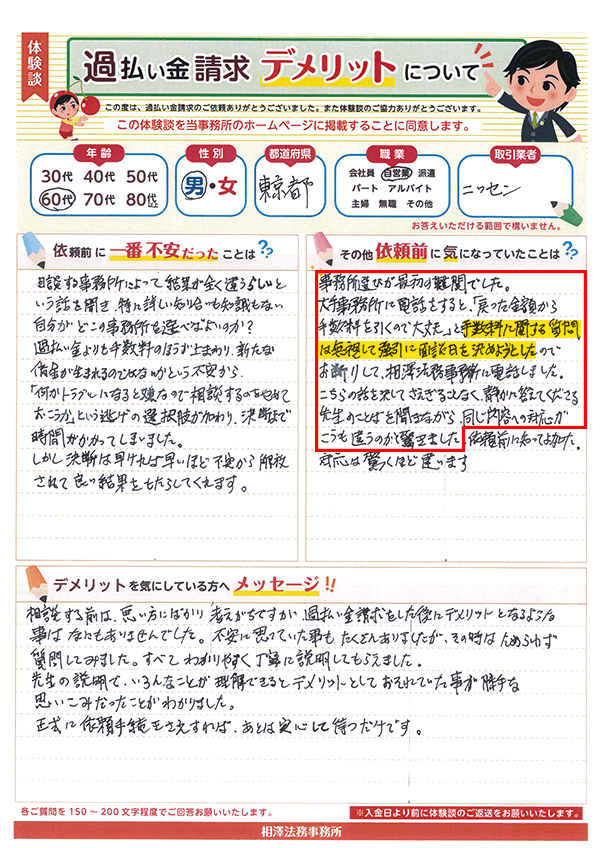 体験談
過払い金請求 デメリットについて
この度は、過払い金請求のご依頼ありがとうございました。また体験談のご協力ありがとうございます。
この体験談を当事務所のホームページに掲載することに同意します。
年齢
30代 40代 50代
60代 70代 80代以上
性別
男・女
都道府県
東京都
職業
会社員 自営業 派遣
パート アルバイト
主婦 無職 その他
取引業者
ニッセン
お答えいただける範囲で構いません。
依頼前に一番不安だったことは??
相談する事務所によって結果が全く違うらしいと
いう話を聞き、特に詳しい知り合いも知識もない
自分がどこの事務所を選べばよいのか?
過払い金よりも手数料のほうが上まわり、新たな
借金が生まれるのではないかという不安から、
「何かトラブルになると嫌なので相談するのをやめて
おこうか」という逃げの選択肢が加わり、決断まで
時間がかかってしまいました。
しかし決断は早ければ早いほど不安から解放
されて良い結果をもたらしてくれます。
その他依頼前に気になっていたことは??
事務所選びが最初の難関でした。
大手事務所に電話をすると、「戻った金額から
手数料を引くので大丈夫」と手数料に関する質問
は無視して強引に面談日を決めようとしたので
お断りして、相澤法務事務所に電話しました。
こちらの話を決してさえぎることなく、静かに答えてくださる
先生のことばを聞きながら、同じ内容への対応が
こうも違うのかと驚きました。依頼前に知ってよかった。
対応は驚くほど違います
デメリットを気にしている方へメッセージ!!
相談する前は、悪い方にばかり考えがちですが過払い金請求をした後にデメリットとなるような
事はなにもありませんでした。不安に思っていた事もたくさんありましたが、その時はためらわず
質問してみました。すべてわかりやすく丁寧に説明してもらえました。
先生の説明で、いろんなことが理解できるとデメリットとしておそれていた事が勝手な
思いこみだったことがわかりました。
正式に依頼手続をさえすれば、あとは安心して待つだけです。
各ご質問を150～200文字程度でご回答お願いいたします。
※入金日より前に体験談のご返送をお願いいたします。
相澤法務事務所